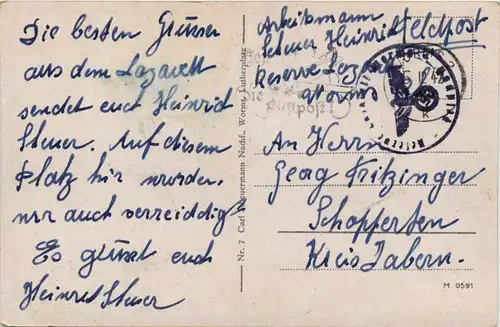 Die besten Grüsse
aus dem Lazarett
sendet euch Heinrich
Steuer. Auf diesem
Platz hir wurden
wir auch vereidigt
Es grüsst euch
Heinrich Steuer
Nr. 7 Carl Neuermann Nachf., Worms, Lutherplatz
Arbeitsmann
Steuer Heinrich
Feldpost
Reserve Laz.
Worms
An Herrn
Georg Fritzinger
Schopperten
Kreis Zabern.
M 0591